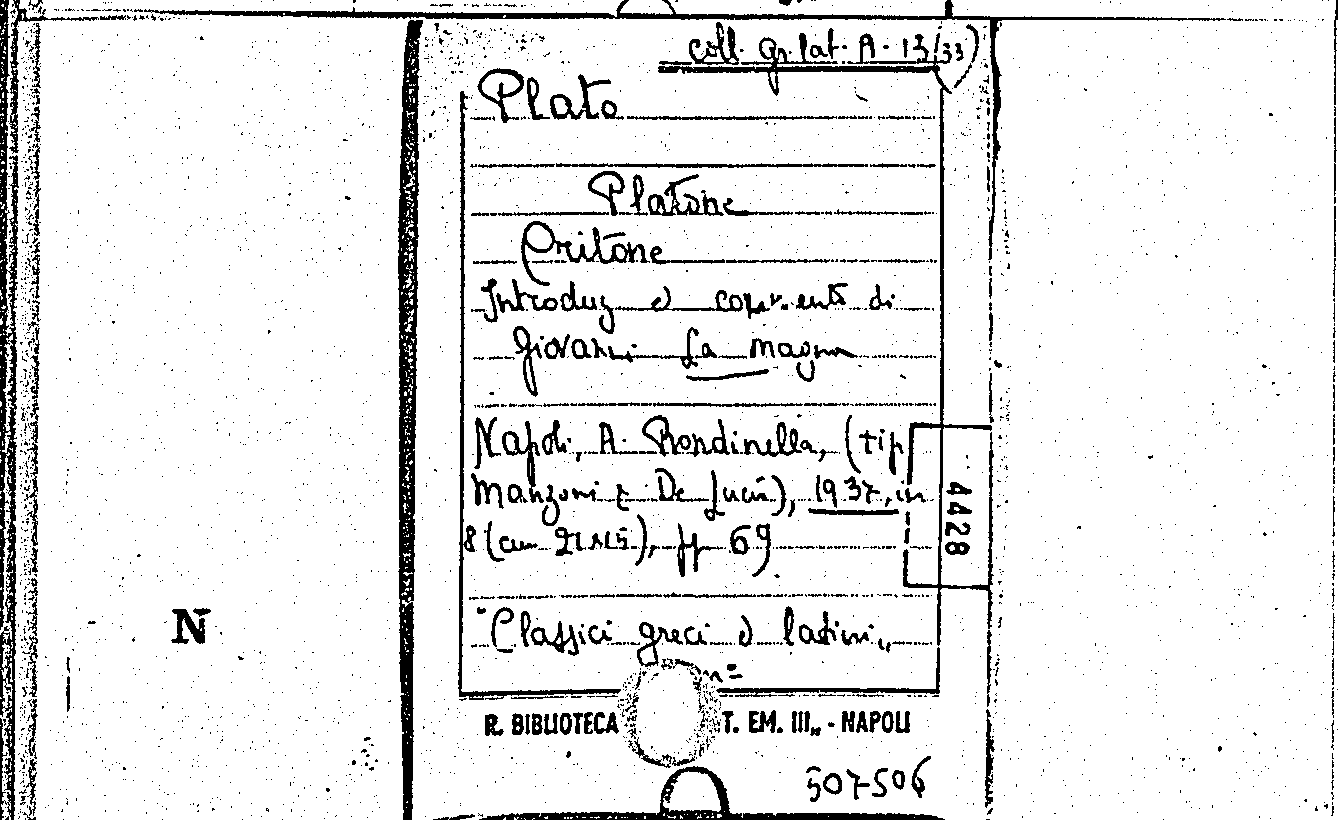 coll. gr. lat. A. 13 (33)
Plato
Platone
Critone
Introduz e commento di
Giovanni La Magna
Napoli, A. Rondinella, (tip
Manzoni e De Lucia), 1937, in
8 (cm ), pp 69
"Classici greci e latini"
n=
4428
N
R. BIBLIOTECA T. EM. III„ - NAPOLI
507506